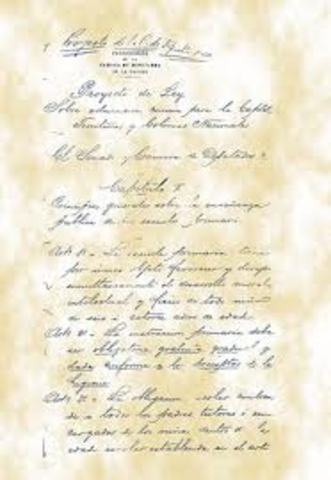 Proyecto de Ley
CAMARA DE DIPUTADOS
DE LA NACION
Proyecto de Ley
Sobre educacion comun para la Capital
Territorios y Colonias Nacionales
El Senado y Camara de Diputados &
Capitulo I
Principios generales sobre la enseñanza
publica de las escuelas primarias
Art. 1º La escuela primaria tiene
por unico objeto favorecer y dirigir
simultaneamente el desarrollo moral,
intelectual y fisico de todo niño
de seis a catorce años de edad.
Art. 2º La instruccion primaria debe
ser obligatoria gratuita gradual y
dada conforme a los preceptos de la
higiene
Art. 3º La obligacion escolar comprende
a todos los padres tutores o en
cargados de los niños dentro de la
edad escolar establecida en el art